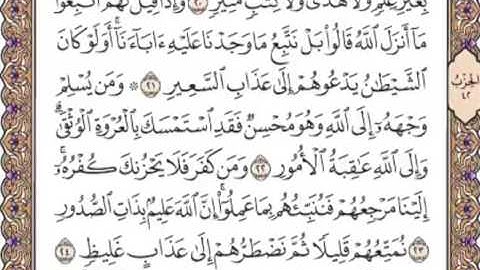 بِغَيْرِ عِلْمٍ وَلَا هُدًى وَلَا كِتَٰبٍ مُّنِيرٍ ٢٠ وَإِذَا قِيلَ لَهُمُ ٱتَّبِعُوا۟
مَآ أَنزَلَ ٱللَّهُ قَالُوا۟ بَلْ نَتَّبِعُ مَا وَجَدْنَا عَلَيْهِ ءَابَآءَنَآ ۚ أَوَلَوْ كَانَ
ٱلشَّيْطَٰنُ يَدْعُوهُمْ إِلَىٰ عَذَابِ ٱلسَّعِيرِ ٢١ ۞ وَمَن يُسْلِمْ
وَجْهَهُۥٓ إِلَى ٱللَّهِ وَهُوَ مُحْسِنٌ فَقَدِ ٱسْتَمْسَكَ بِٱلْعُرْوَةِ ٱلْوُثْقَىٰ ۗ
وَإِلَى ٱللَّهِ عَٰقِبَةُ ٱلْأُمُورِ ٢٢ وَمَن كَفَرَ فَلَا يَحْزُنكَ كُفْرُهُۥٓ ۚ
إِلَيْنَا مَرْجِعُهُمْ فَنُنَبِّئُهُم بِمَا عَمِلُوٓا۟ ۚ إِنَّ ٱللَّهَ عَلِيمٌۢ بِذَاتِ ٱلصُّدُورِ
٢٣ نُمَتِّعُهُمْ قَلِيلًا ثُمَّ نَضْطَرُّهُمْ إِلَىٰ عَذَابٍ غَلِيظٍ ٢٤
الحِزْبُ
٤٢